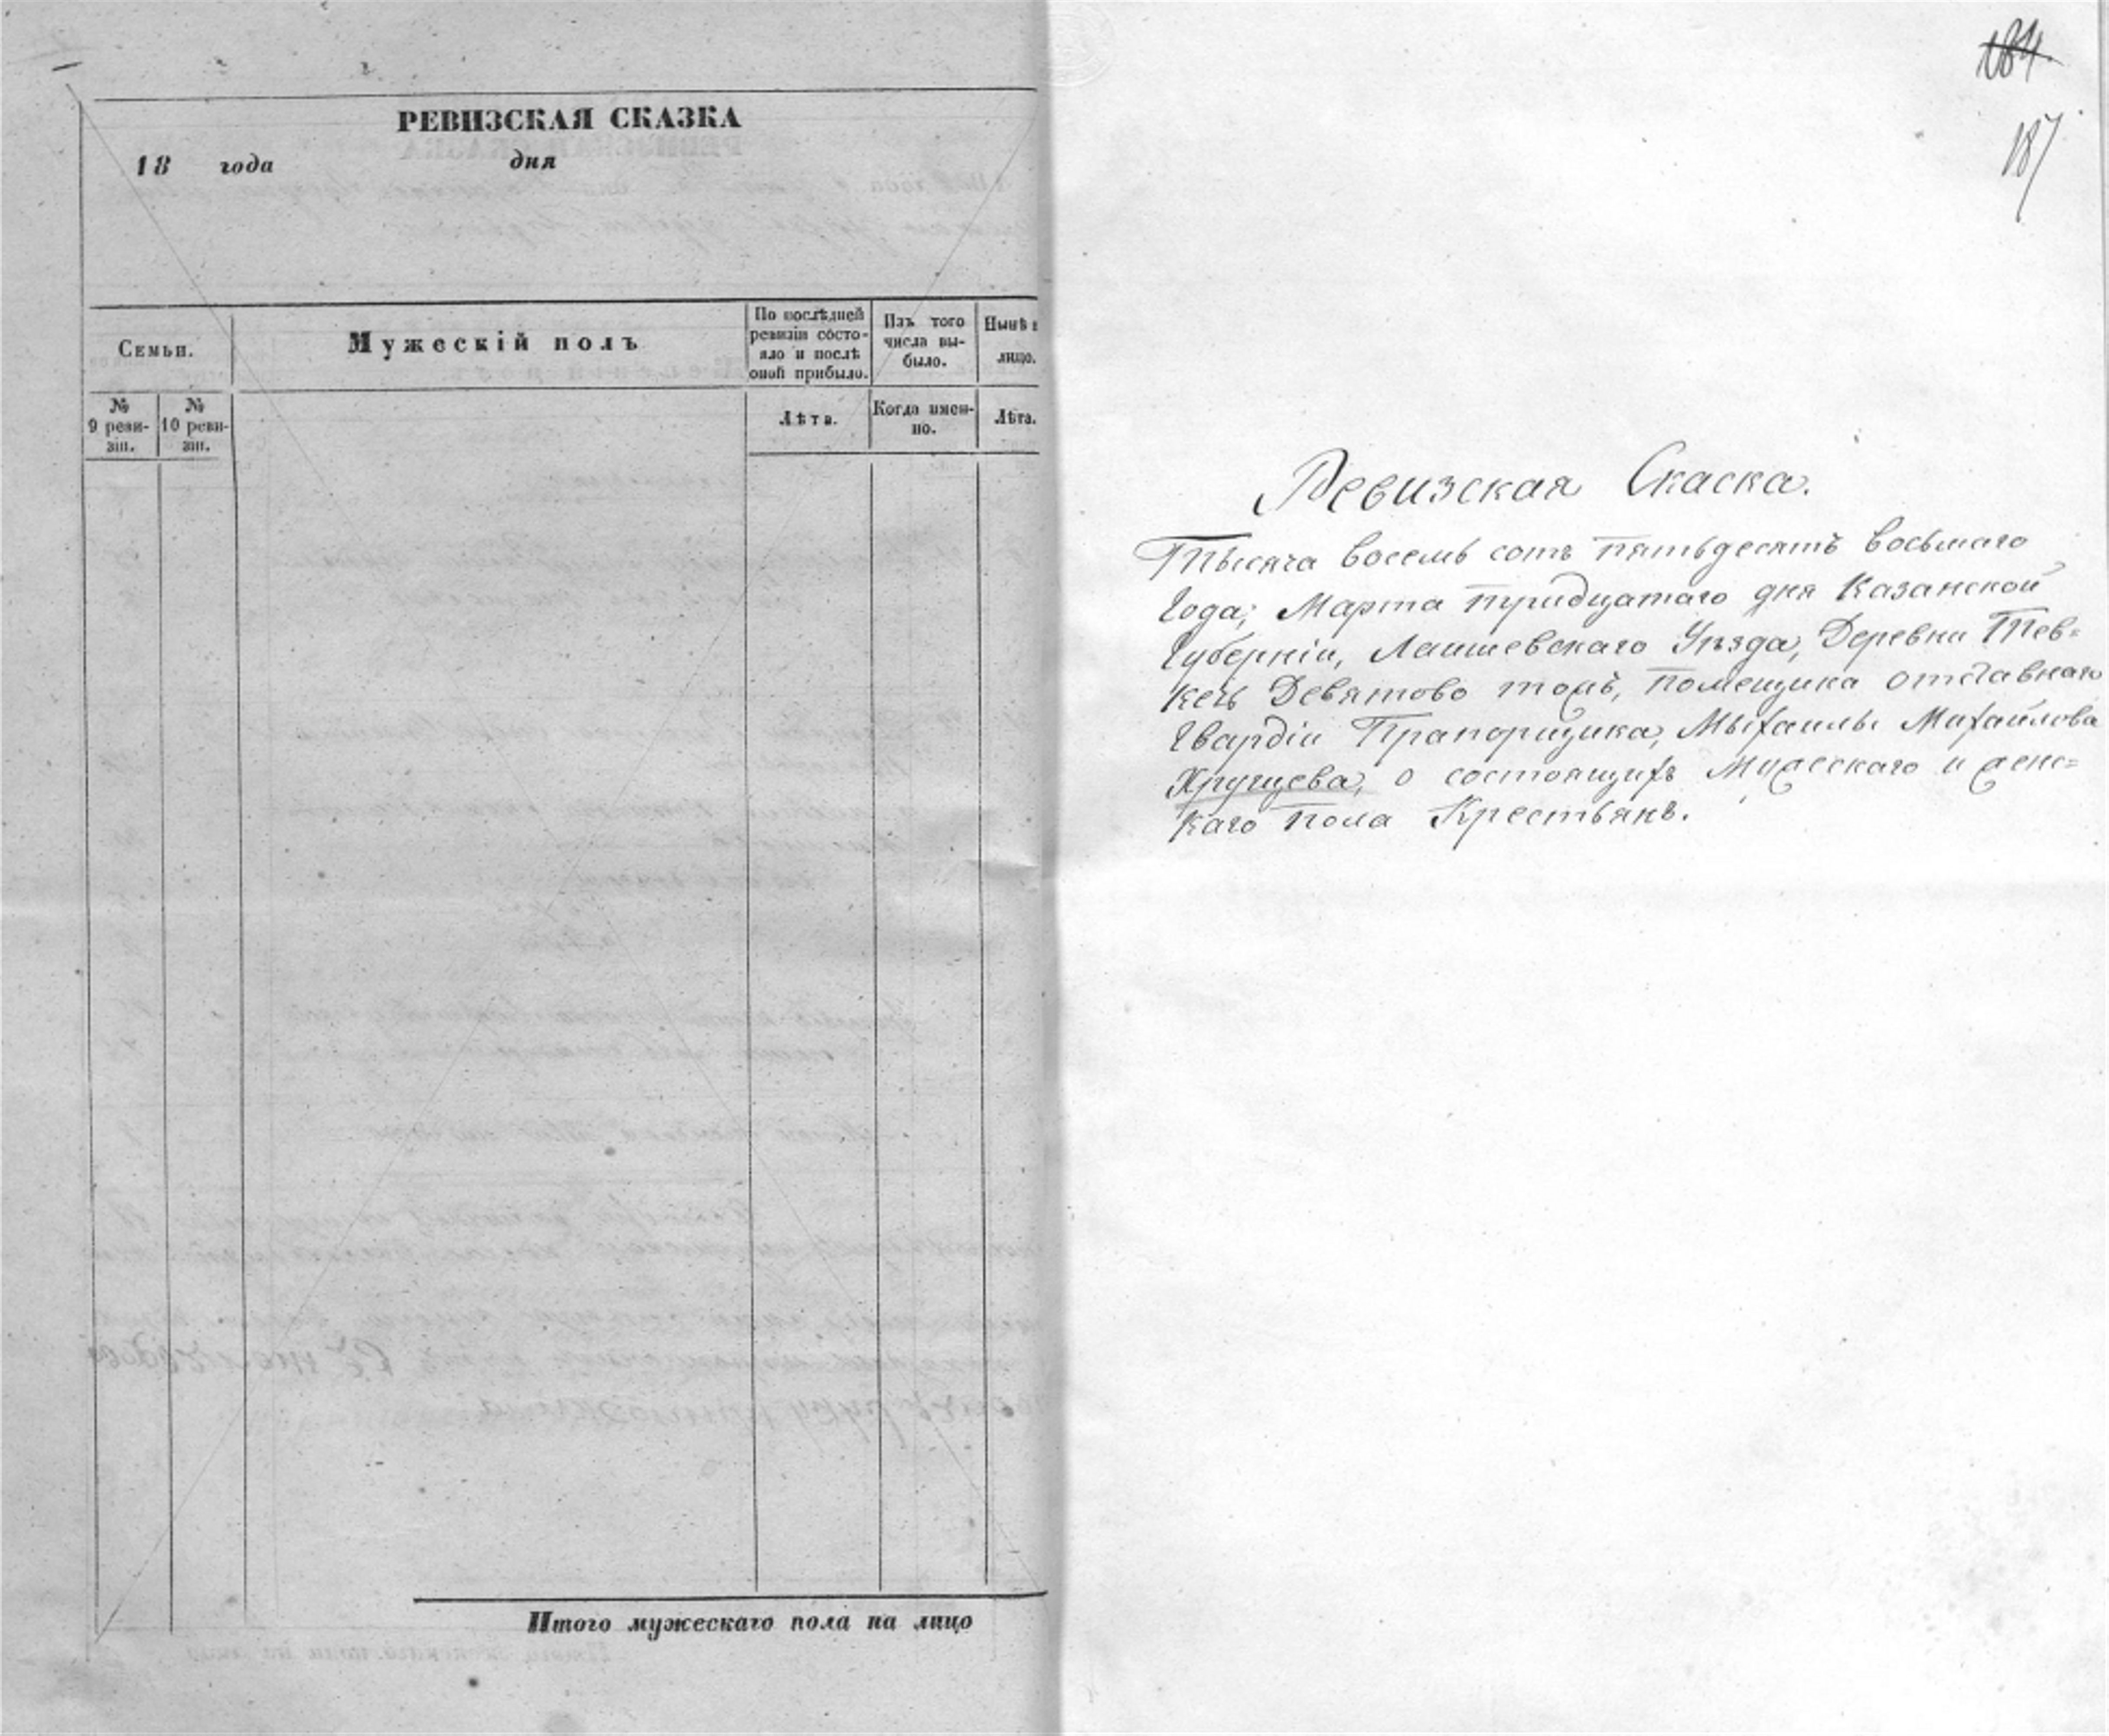 РЕВИЗСКАЯ СКАЗКА
18 года дня
Семьи.
Мужескій полъ
По послѣдней
ревизіи состо-
яло и послѣ
оной прибыло.
Изъ того
числа вы-
было.
Нынѣ н
лицо.
№
9 реви-
зіи.
№
10 реви-
зіи.
Лѣта.
Когда имен-
но.
Лѣта.
Итого мужескаго пола на лицо
184.
187
Ревизская Скаска.
Тысяча восемь сотъ пятьдесятъ восьмаго
Года; Марта тридцатаго дня Казанской
Губерніи, Лаишевскаго Уѣзда, Деревни Тев=
кечь Девятово тожъ, помещика отставнаго
Гвардіи Прапорщика, Мыхаилы Михайлова
Хрущева, о состоящихъ Мужескаго и женс=
каго пола Крестьянъ.